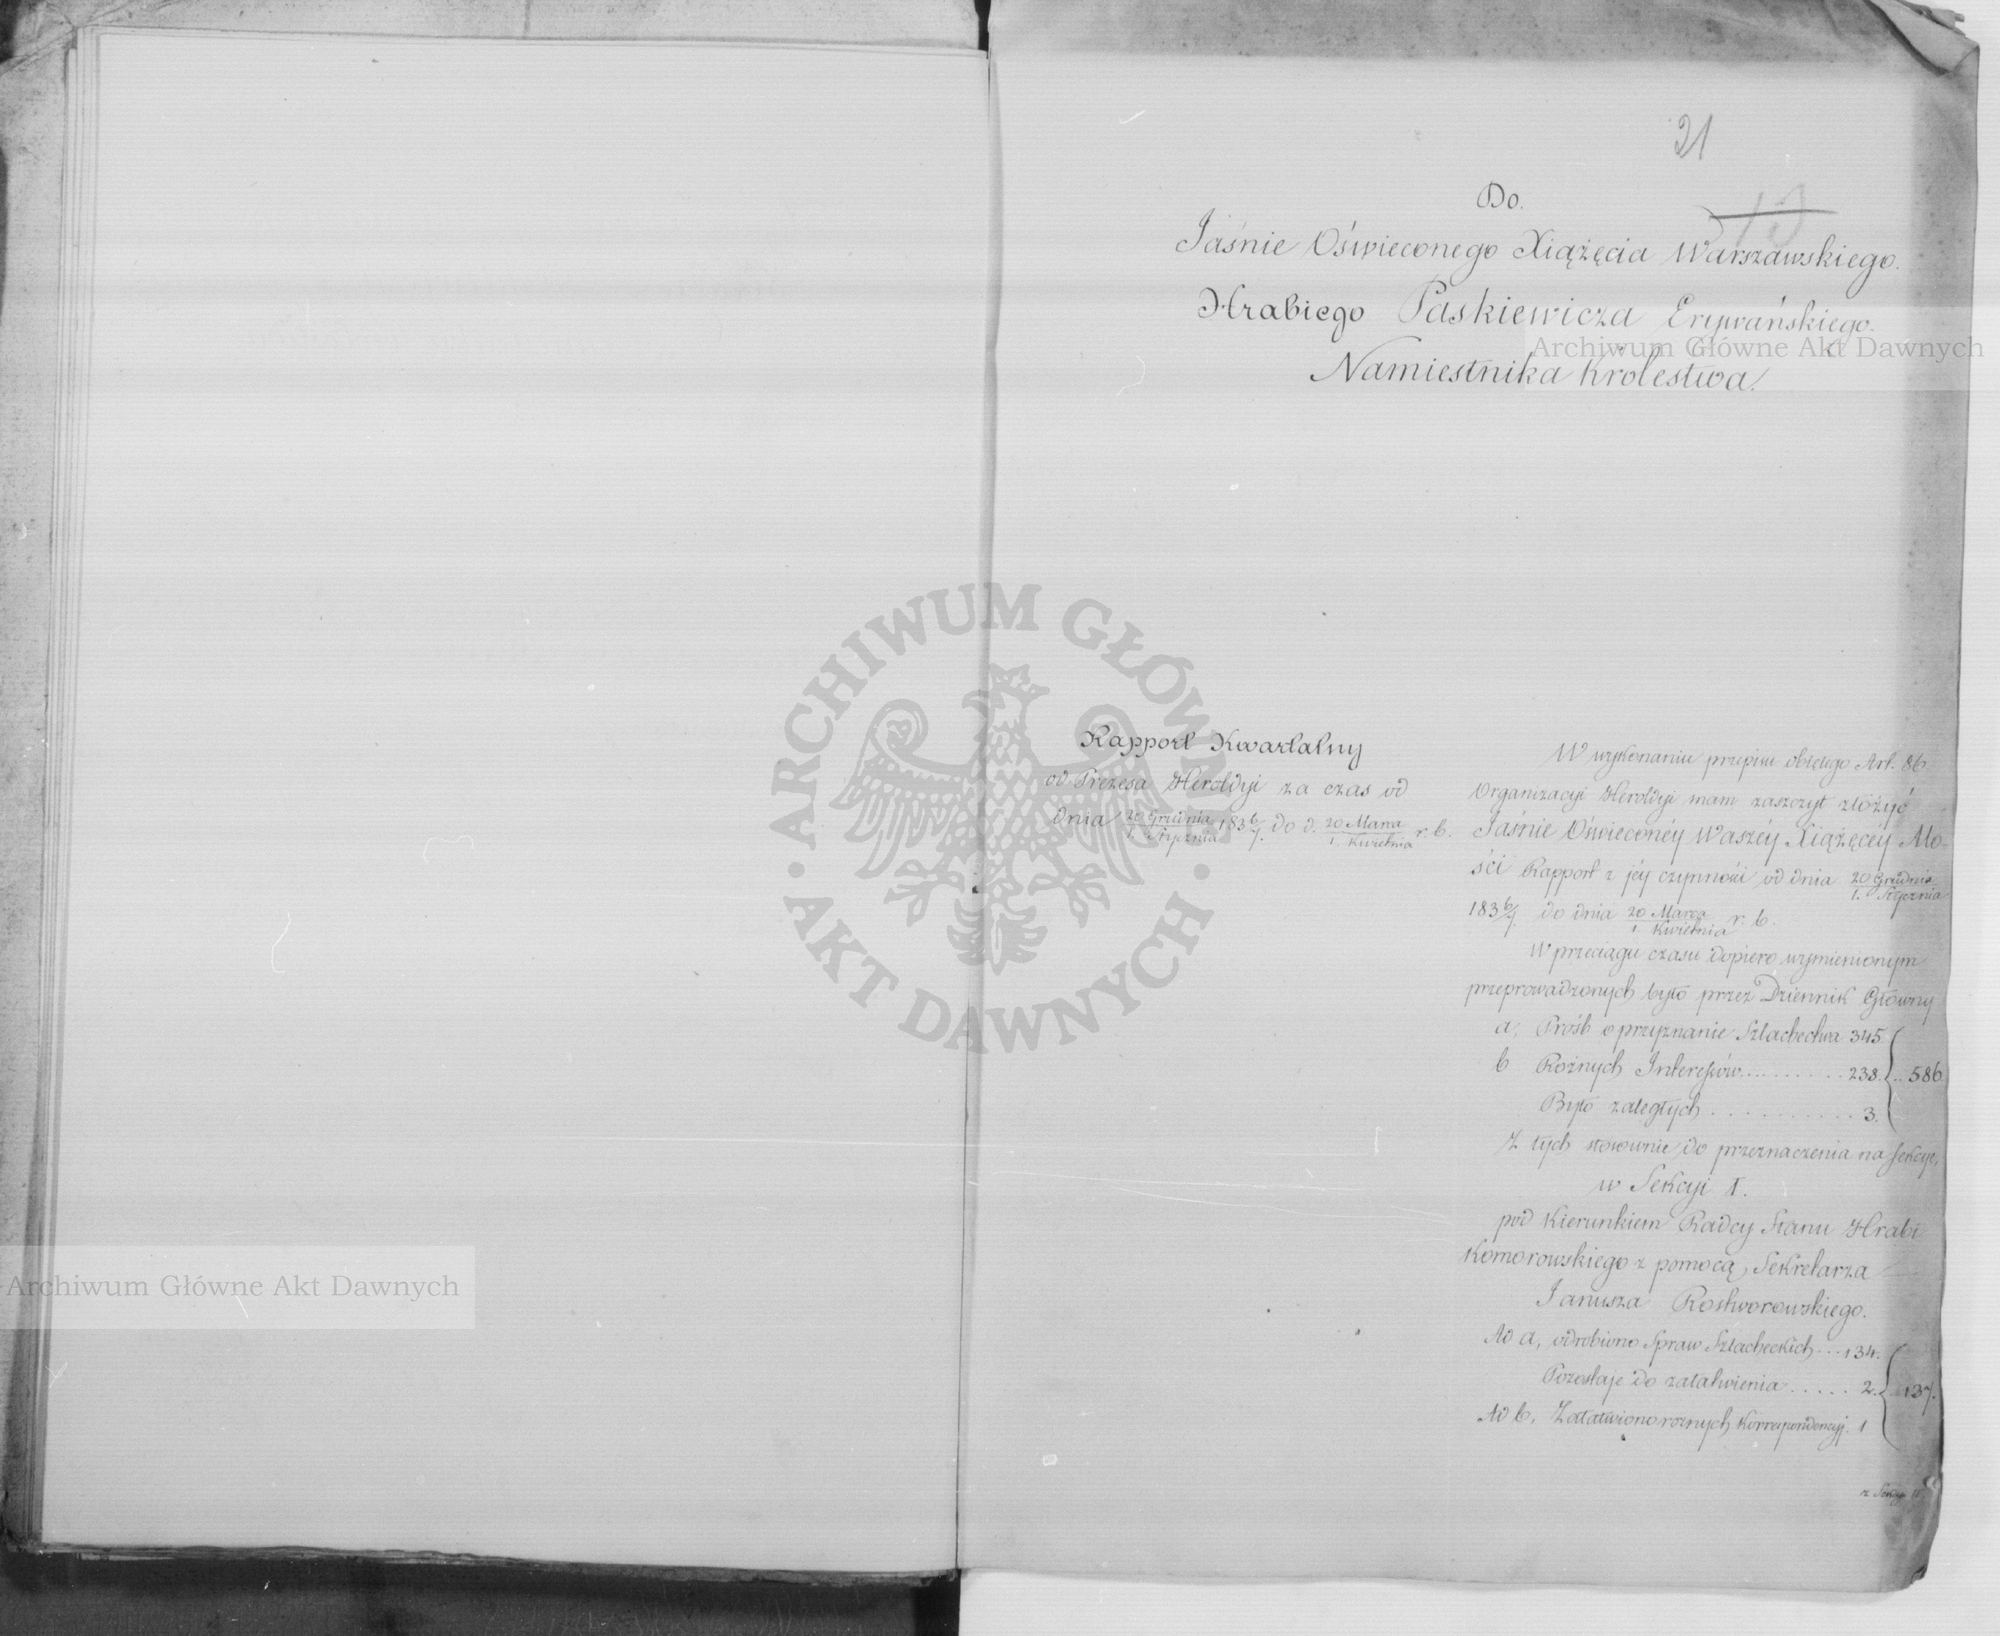 21
Do.
Jaśnie Oświeconego Xiążęcia Warszawskiego.
Hrabiego Paskiewicza Erywańskiego.
Namiestnika Królestwa.
Archiwum Główne Akt Dawnych
ARCHIWUM GŁÓWNE · AKT DAWNYCH ·
Rapport Kwartalny
od Prezesa Heroldyi za czas od
dnia 20 Grudnia / 1. Stycznia 1836/7. do d. 20 Marca / 1. Kwietnia r. b.
W wykonaniu przepisu objętego Art. 86.
Organizacyi Heroldyi mam zaszczyt złożyć
Jaśnie Oświeconéy Waszéy Xiążęcey Mo-
ści Rapport z jéy czynności od dnia 20 Grudnia / 1. Stycznia
1836/7. do dnia 20 Marca / 1. Kwietnia r. b.
W przeciągu czasu dopiero wymienionym
przeprowadzonych było przez Dziennik Główny
a, Prośb o przyznanie Szlachectwa 345
b Rożnych Interessów .......... 238. .. 586.
Było zaległych ........... 3.
Z tych stosownie do przeznaczenia na Sekcye,
w Sekcyi I.
pod Kierunkiem Radcy Stanu Hrabi
Komorowskiego z pomocą Sekretarza
Janusza Rostworowskiego.
Ad a, odrobiono Spraw Szlacheckich ... 134.
Pozostaje do załatwienia ..... 2. .. 137.
Ad b, Załatwiono rożnych Korrespondencyj. 1
z Sekcyi II
Archiwum Główne Akt Dawnych